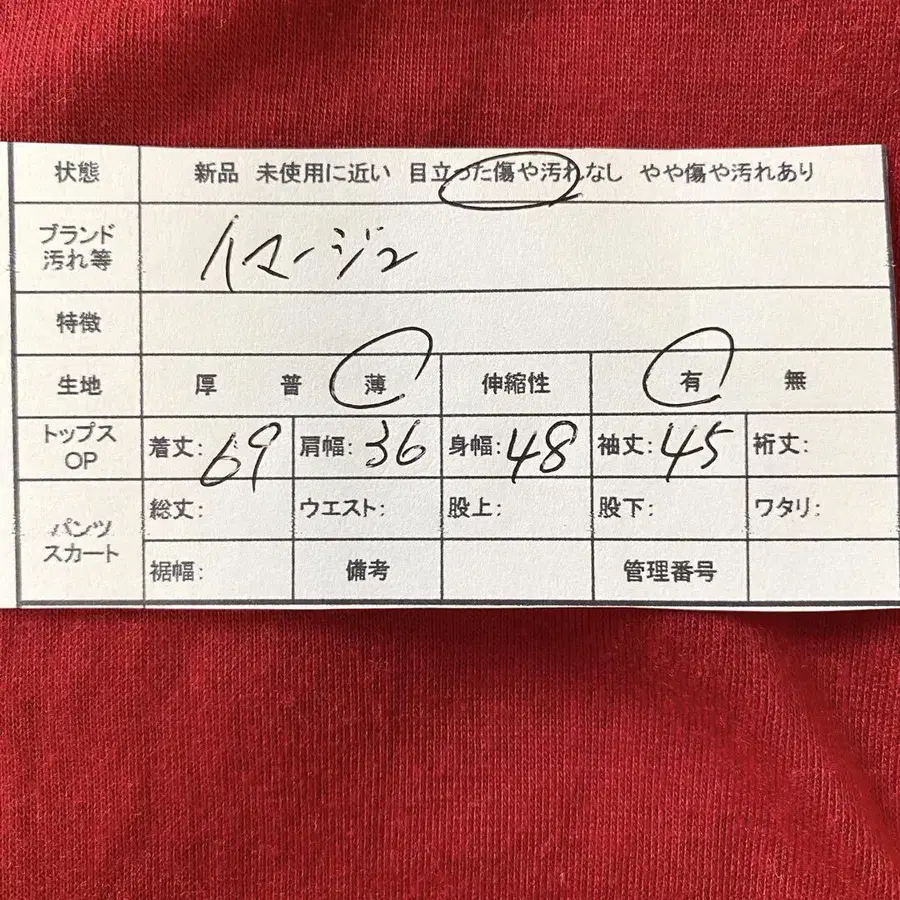 状態 新品 未使用に近い 目立った傷や汚れなし やや傷や汚れあり
ブランド
汚れ等 イマージュ
特徴
生地 厚 普 薄 伸縮性 有 無
トップス
OP 着丈: 69 肩幅: 36 身幅: 48 袖丈: 45 裄丈:
パンツ
スカート 総丈: ウエスト: 股上: 股下: ワタリ:
裾幅: 備考 管理番号